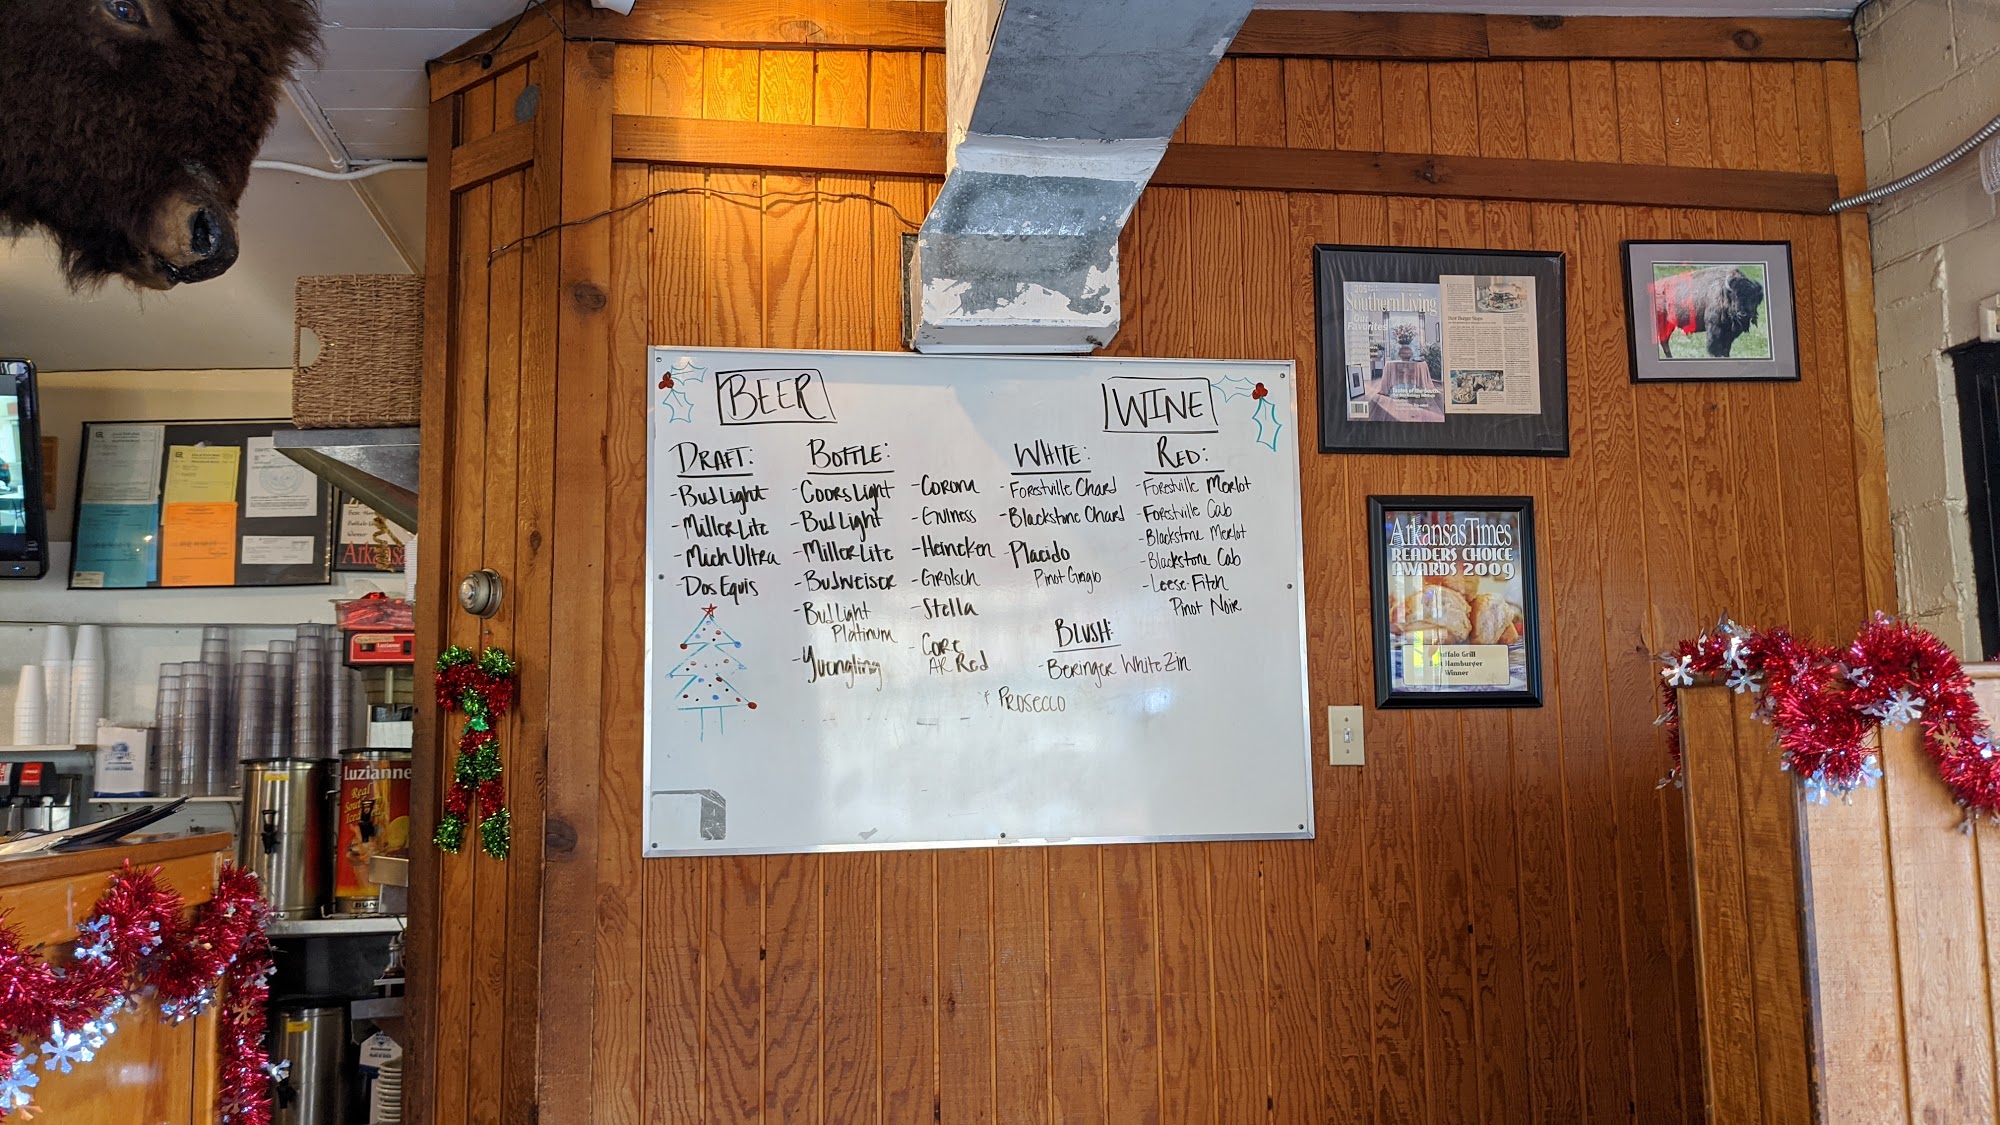 BEER
DRAFT:
- Bud Light
- Miller Lite
- Mich Ultra
- Dos Equis
BOTTLE:
- Coors Light
- Bud Light
- Miller Lite
- Budweiser
- Bud Light
Platinum
- Yuengling
- Corona
- Guiness
- Heineken
- Grolsch
- Stella
- Core
AR Red
WINE
WHITE:
- Forestville Chard
- Blackstone Chard
- Placido
Pinot Grigio
RED:
- Forestville Merlot
- Forestville Cab
- Blackstone Merlot
- Blackstone Cab
- Leese-Fitch
Pinot Noir
BLUSH:
- Beringer White Zin
* PROSECCO
Southern Living
Our
Favorites
Arkansas Times
READERS CHOICE
AWARDS 2009
Buffalo Grill
Hamburger
Winner
Luzianne
Real
BUNN